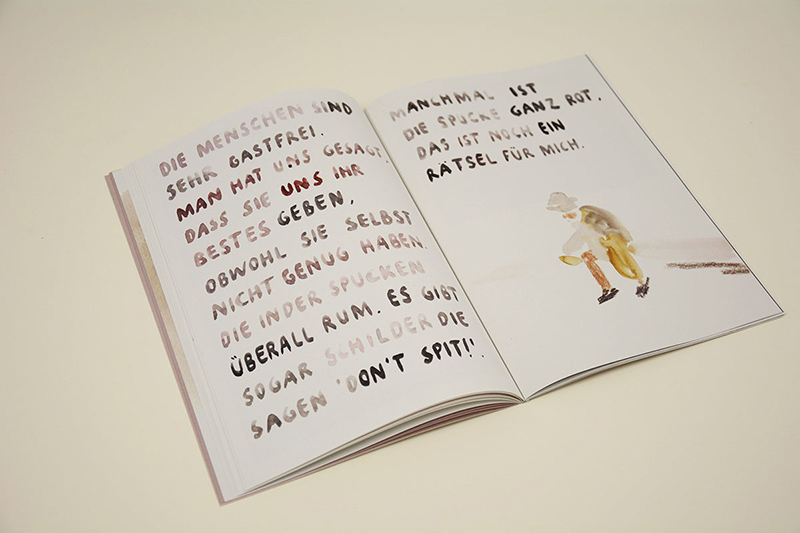 DIE MENSCHEN SIND
SEHR GASTFREI.
MAN HAT UNS GESAGT,
DASS SIE UNS IHR
BESTES GEBEN,
OBWOHL SIE SELBST
NICHT GENUG HABEN.
DIE INDER SPUCKEN
ÜBERALL RUM. ES GIBT
SOGAR SCHILDER DIE
SAGEN 'DON'T SPIT!'.
MANCHMAL IST
DIE SPUCKE GANZ ROT.
DAS IST NOCH EIN
RÄTSEL FÜR MICH.